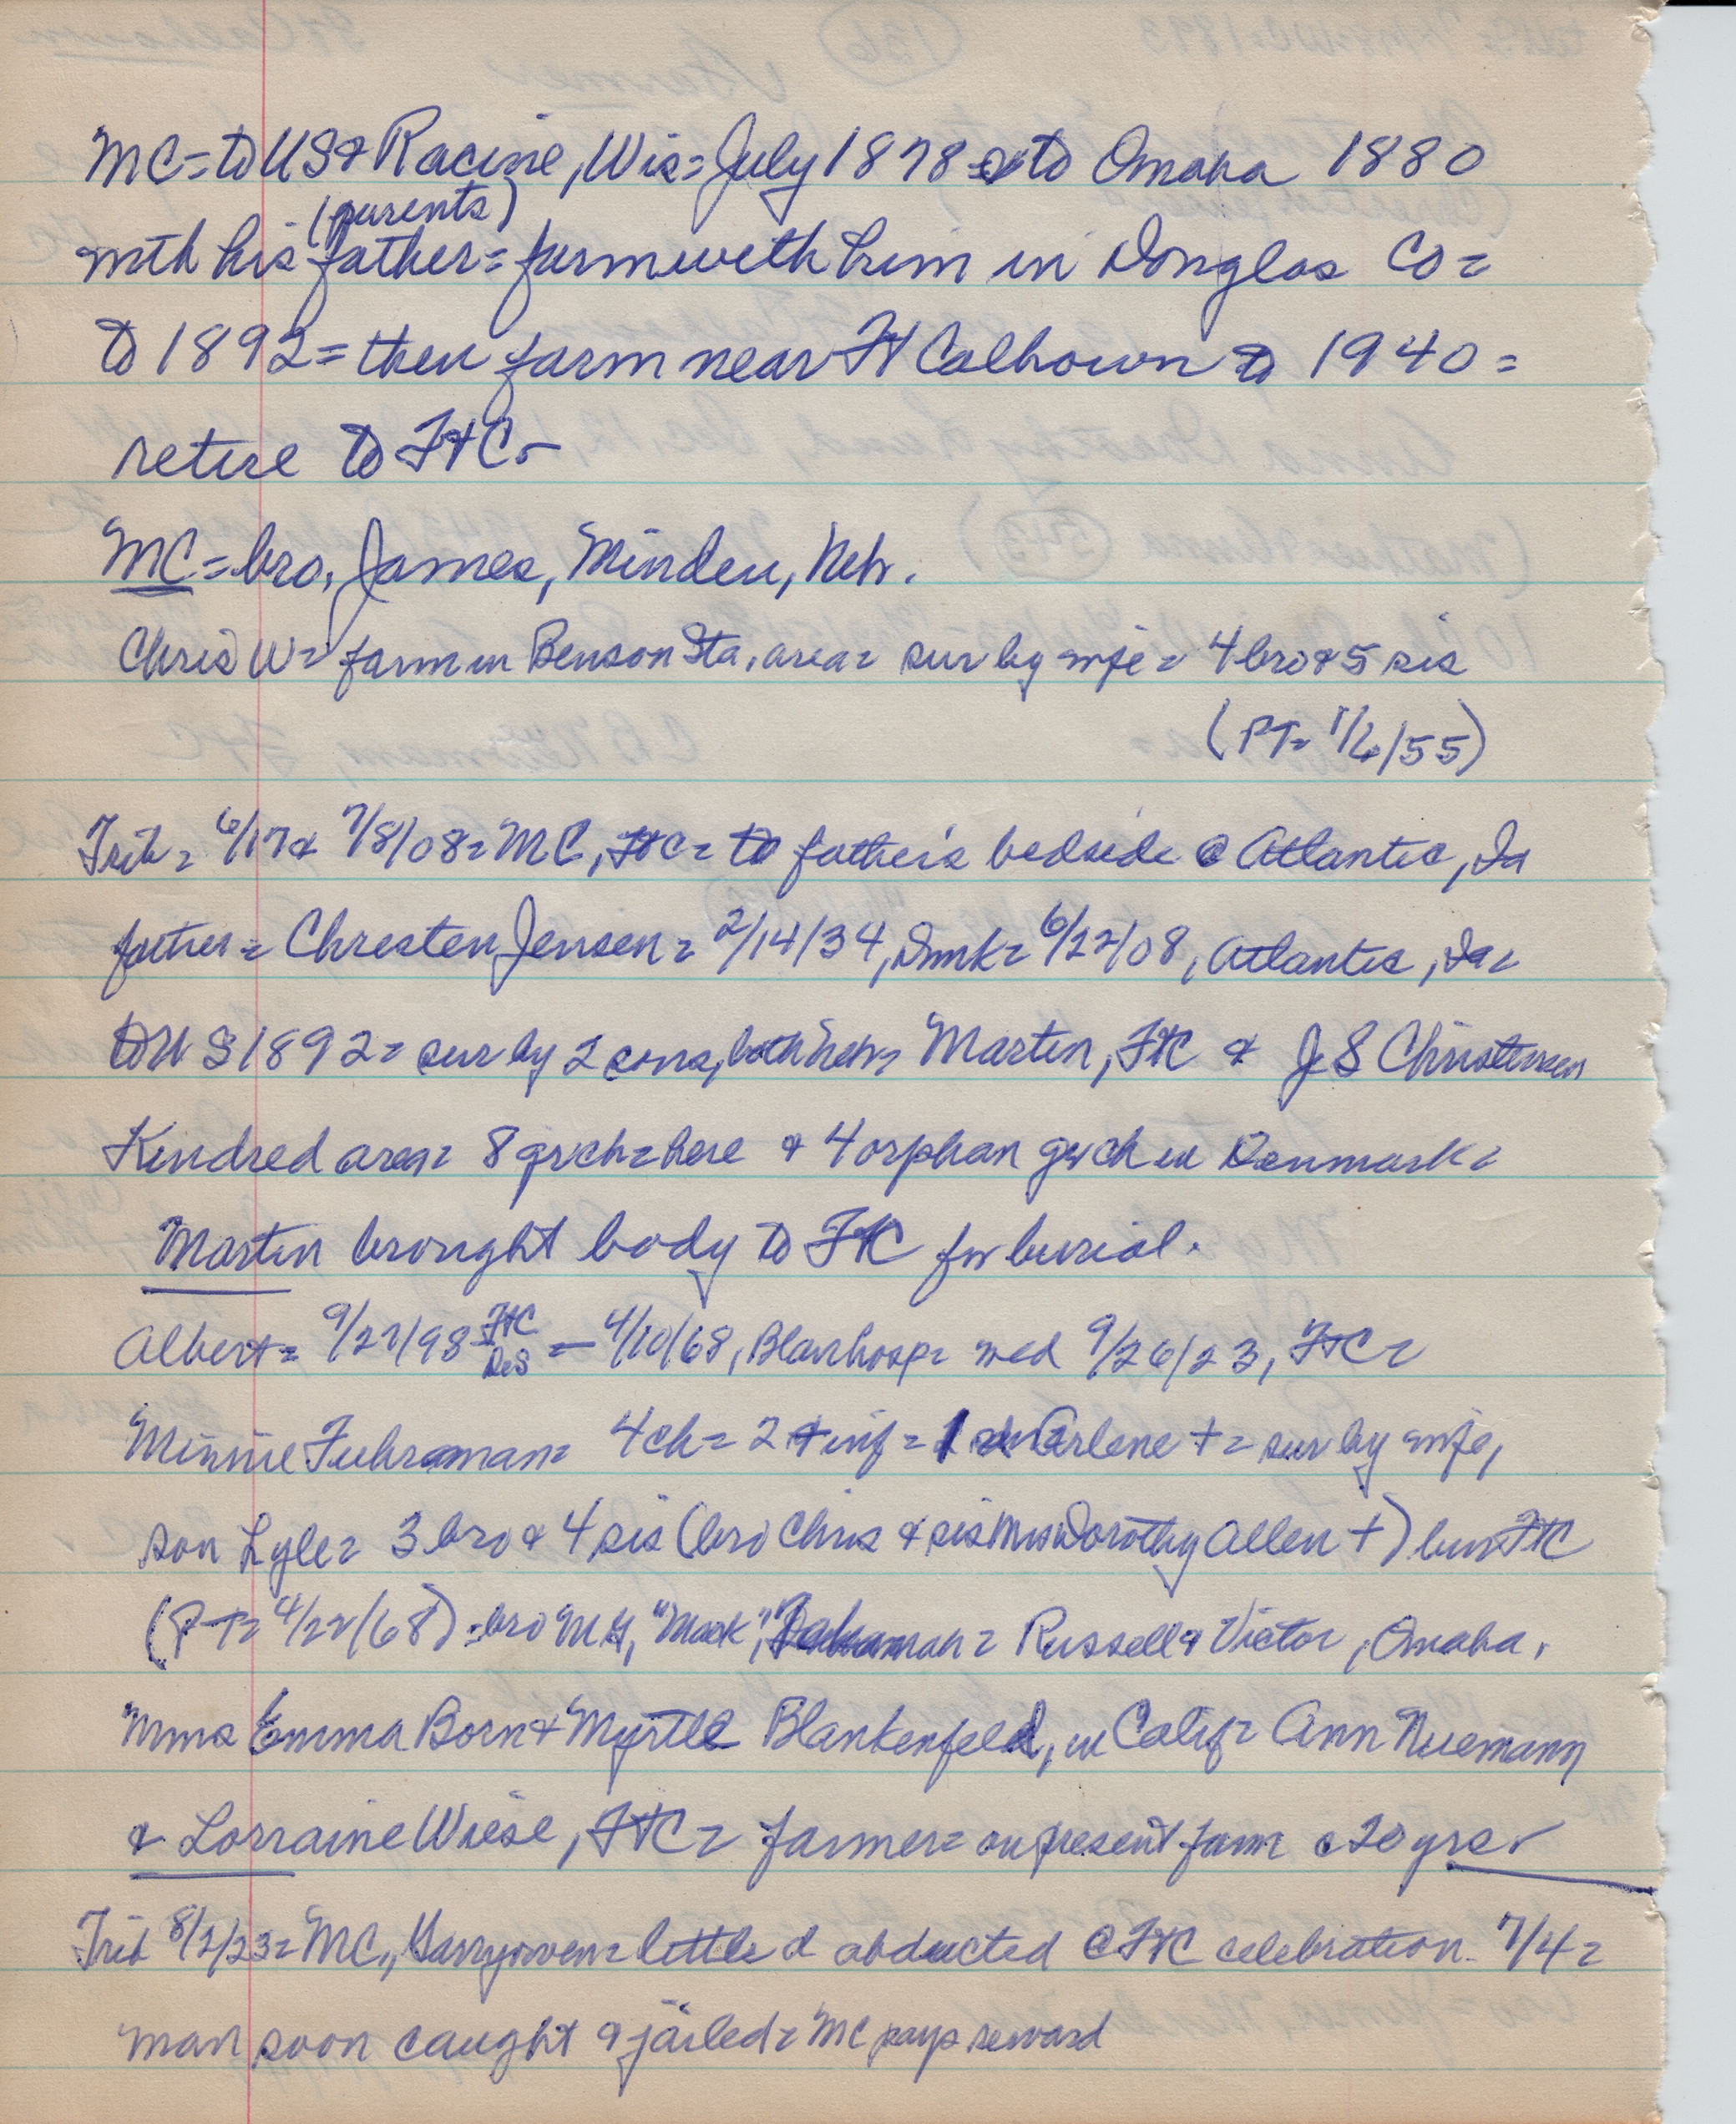 MC = to US & Racine, Wis = July 1878 = to Omaha 1880
(parents)
with his father = farm with him in Douglas Co =
to 1892 = then farm near Ft Calhoun to 1940 =
retire to FtC -
MC = bro, James, Minden, Neb.
Chris W = farm in Benson Sta, area = sur by wife = 4 bro & 5 sis
(PT = 1/6/55)
Trib = 6/17 & 7/8/08 = MC, FtC = to father's bedside @ Atlantic, Ia
father = Chresten Jensen = 2/14/34, Dnmk = 6/22/08, Atlantic, Ia =
to US 1892 = sur by 2 sons, both Neb = Martin, FtC & J S Christensen
Kindred area = 8 grch = here & 4 orphan grch in Denmark =
Martin brought body to FtC for burial.
Albert = 9/22/98 FtC DeS = 4/10/68, Blair hosp = wed 9/26/23, FtC =
Minnie Fuhraman = 4 ch = 2 + inf = 1 Arlene + = sur by wife,
son Lyle = 3 bro & 4 sis (bro Chris & sis Mrs Dorothy Allen +) bur FtC
(PT = 4/22/68) = bro M G, "Mack", = Russell & Victor, Omaha,
Mms Emma Born & Myrtle Blankenfeld, in Calif = Ann Nuemann
& Lorraine Wiese, FtC = farmer = on present farm c 20 yrs.
Trib 8/2/23 = MC, Garryowen = little d abducted @ FtC celebration 7/4 =
man soon caught & jailed = MC pays reward